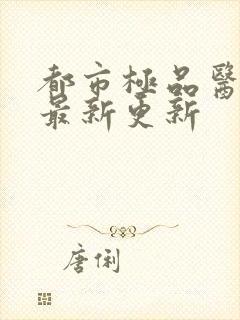 都市極品醫
最新更新
唐俐